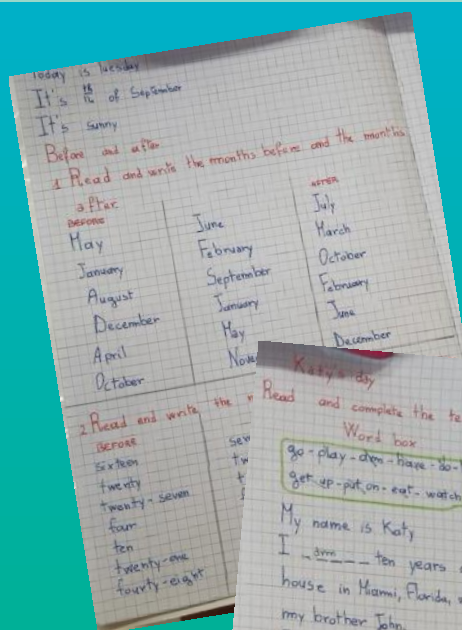 Today is Tuesday
It's of September
It's sunny
Before and after
1 Read and write the months before and the months
after
BEFORE AFTER
May June July
January February March
August September October
December January February
April May June
October December
2 Read and write the
BEFORE
sixteen
twenty
twenty-seven
four
ten
twenty-one
fourty-eight
Katy's day
Read and complete the
Word box
go - play - - have - do -
get up - put on - eat - watch
My name is Katy
I am ten years
house in Miami, Florida,
my brother John.